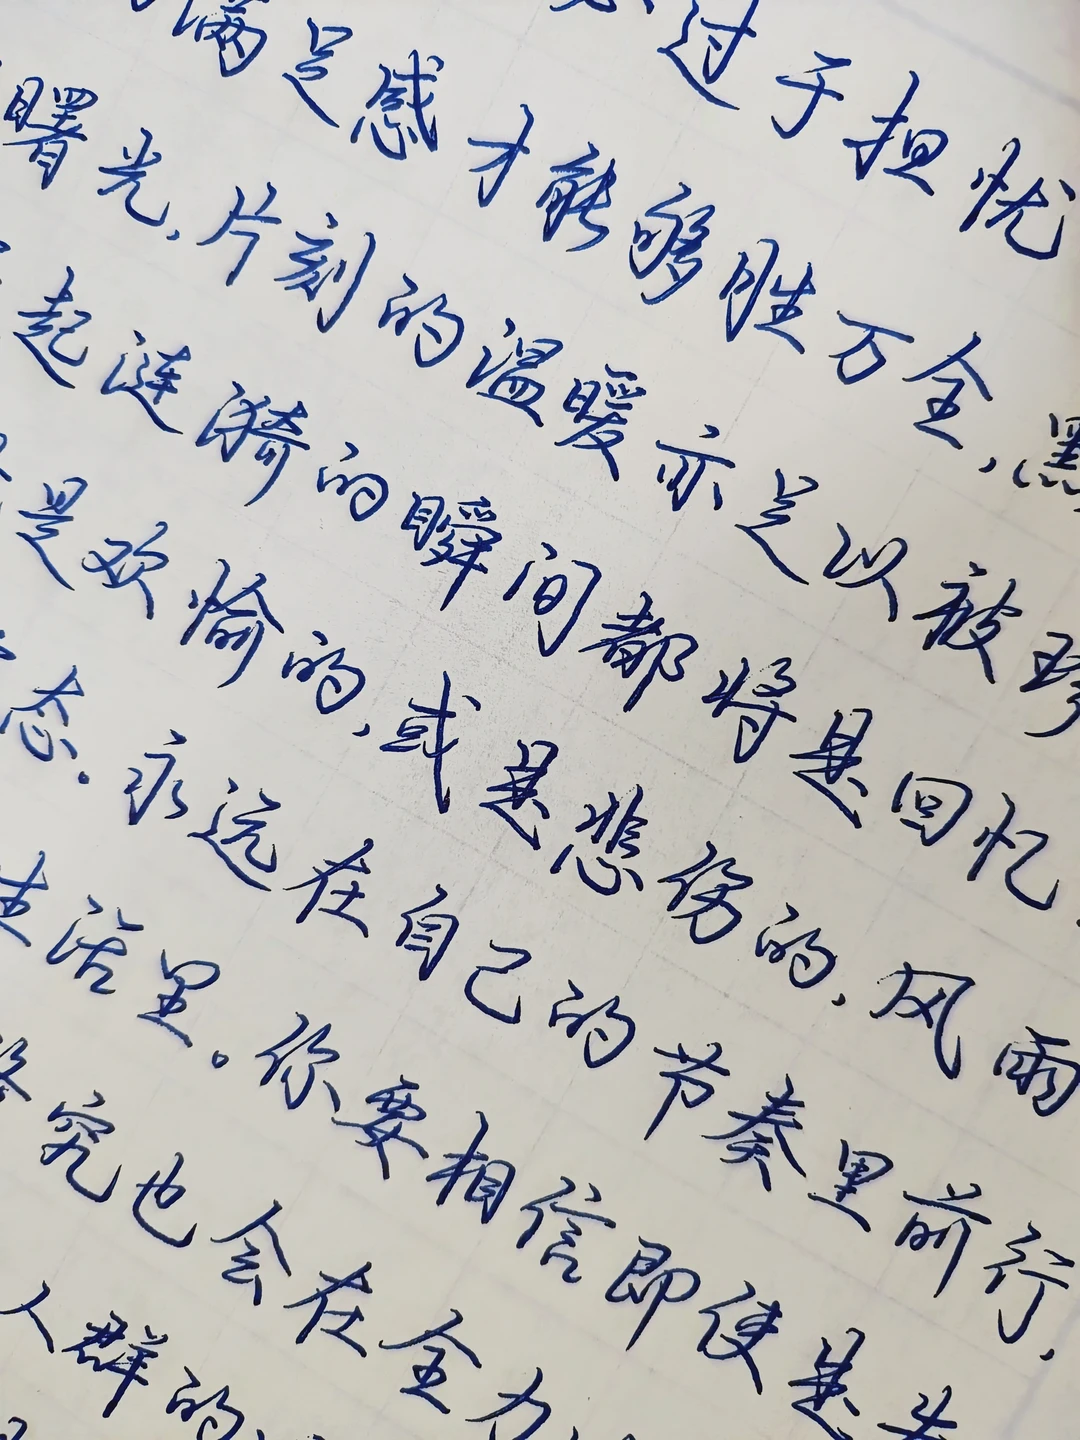 过于担忧
满足感才能够胜万全,黑
曙光,片刻的温暖亦足以被珍
起涟漪的瞬间都将是回忆,
是欢愉的,或是悲伤的,风雨
态。永远在自己的节奏里前行,
生活里。你要相信即使是
终究也会在全力
人群的,